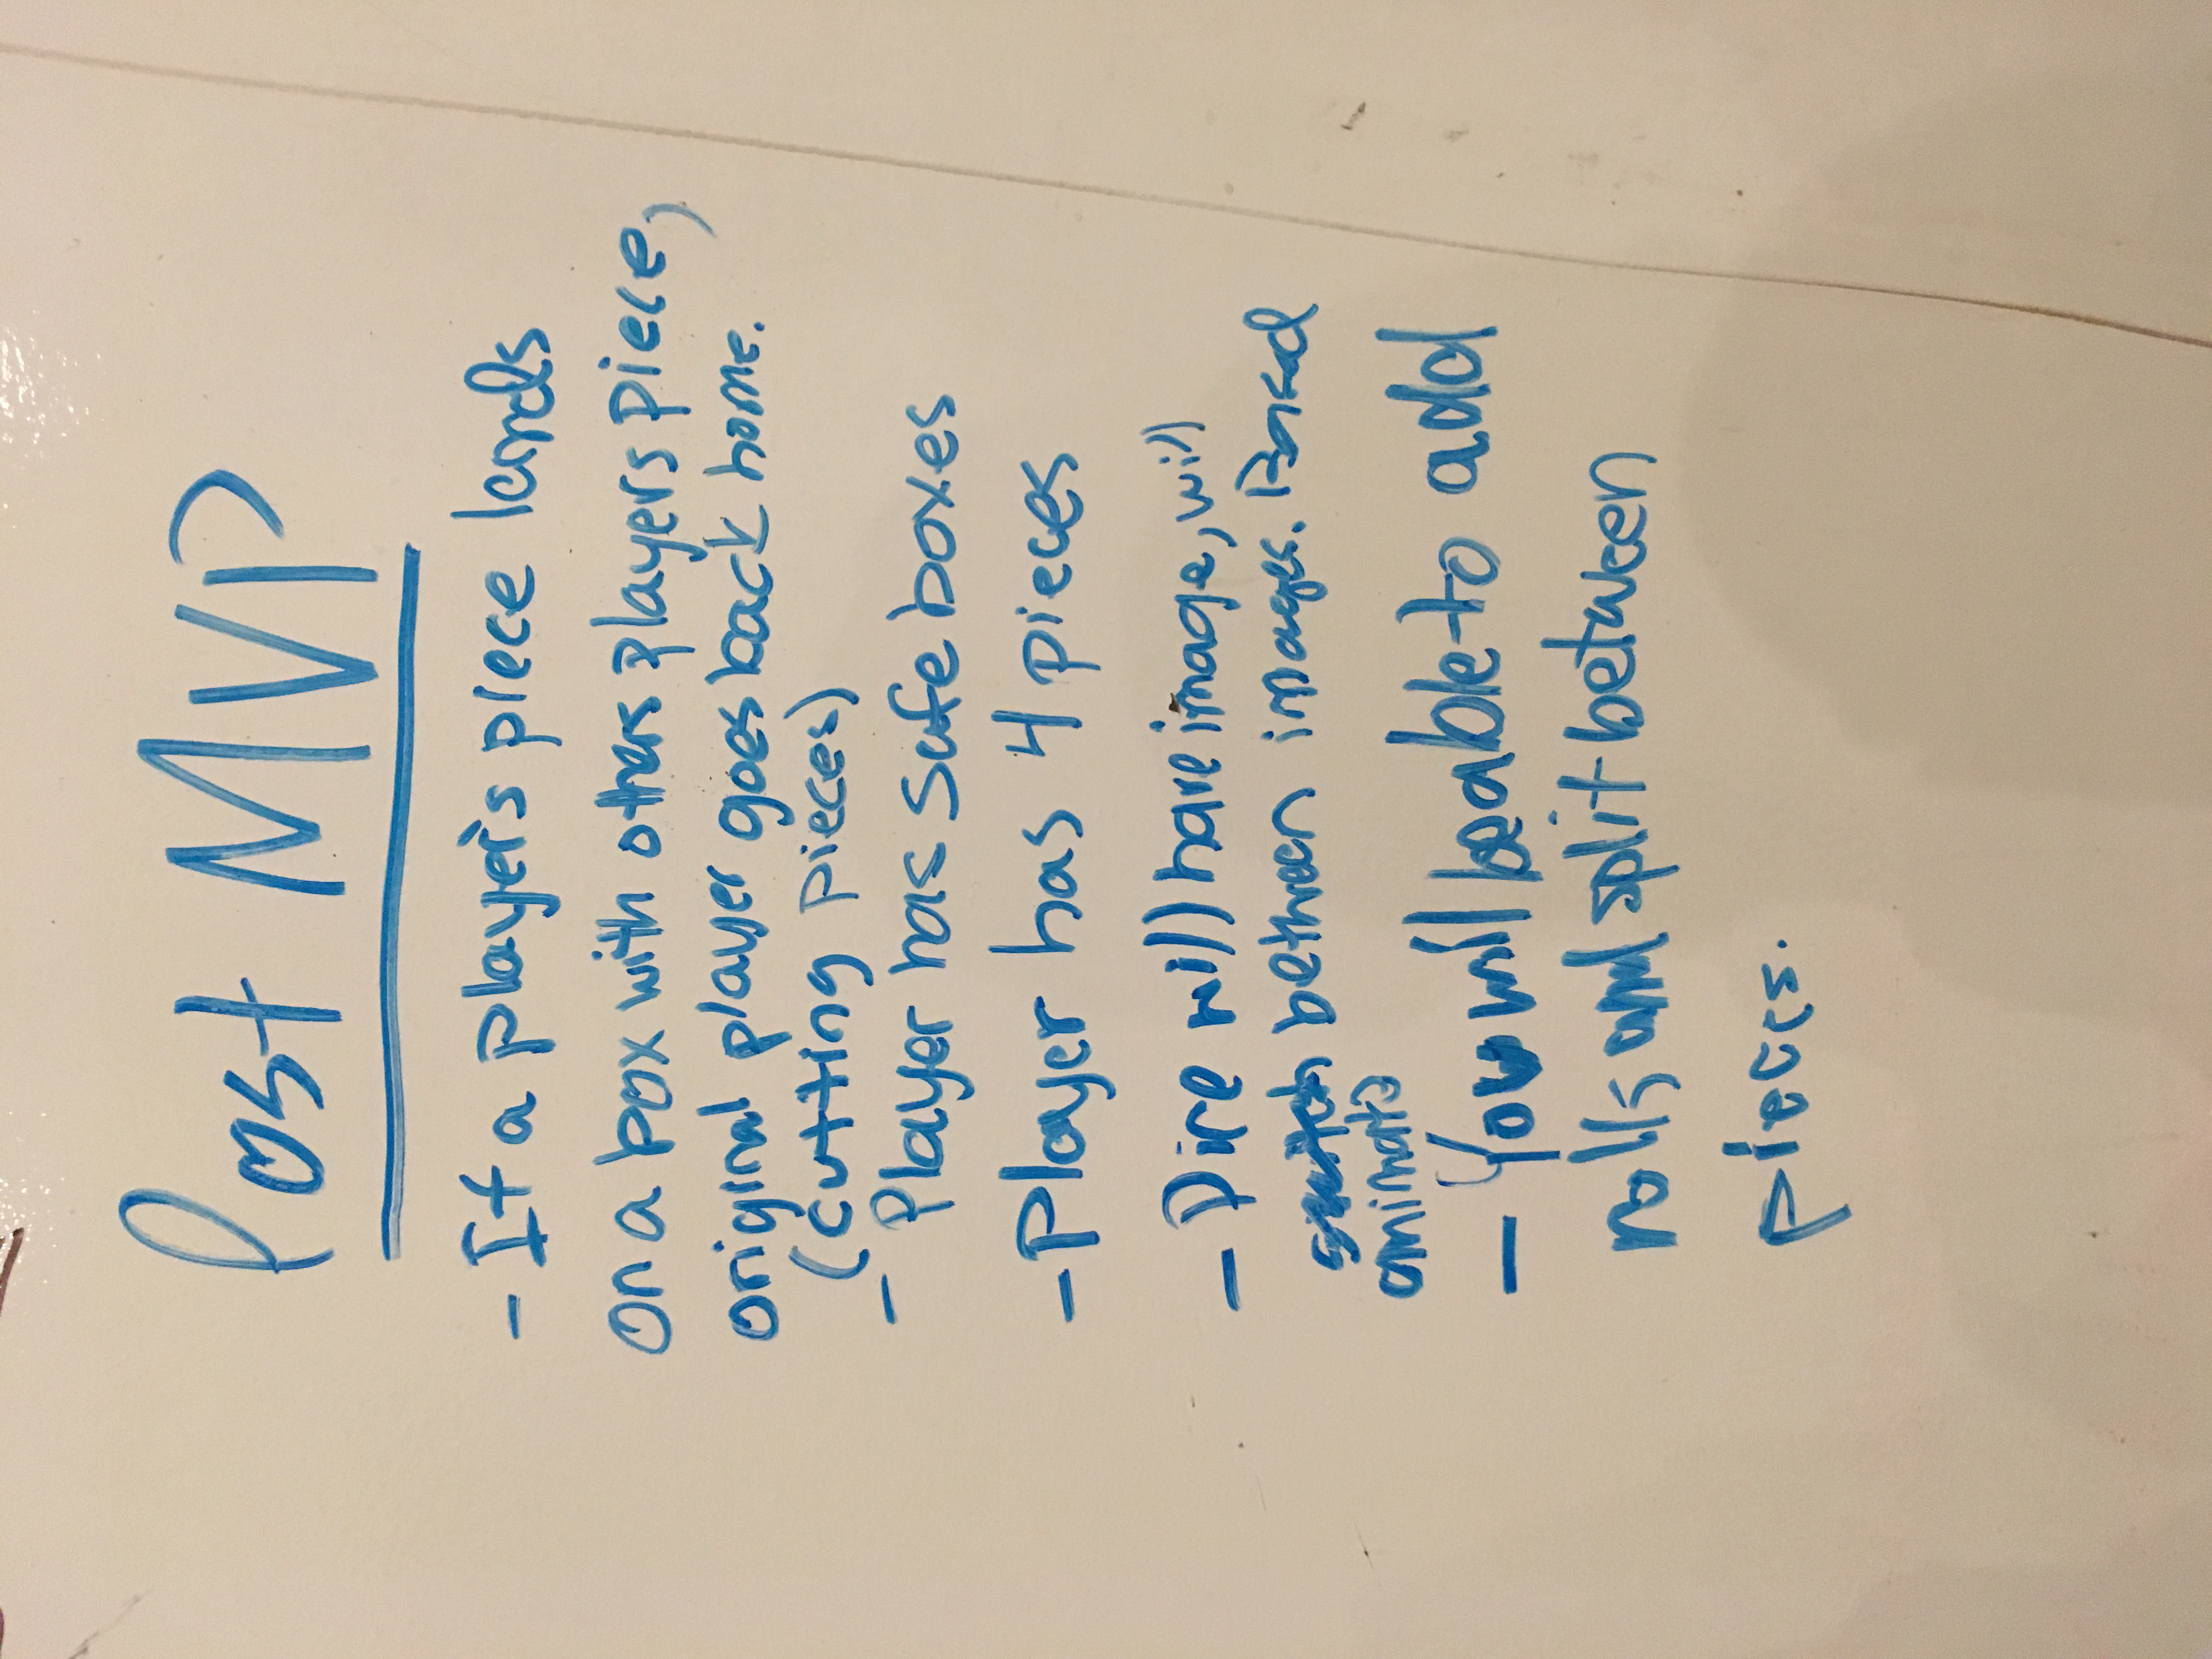 Post MVP
- If a player's piece lands
on a box with others players piece,
original player goes back home.
(cutting pieces)
- Player has safe boxes
- Player has 4 pieces
- Dice will have image, will
switch between images. Based
- You will be able to add
rolls and split between
pieces.